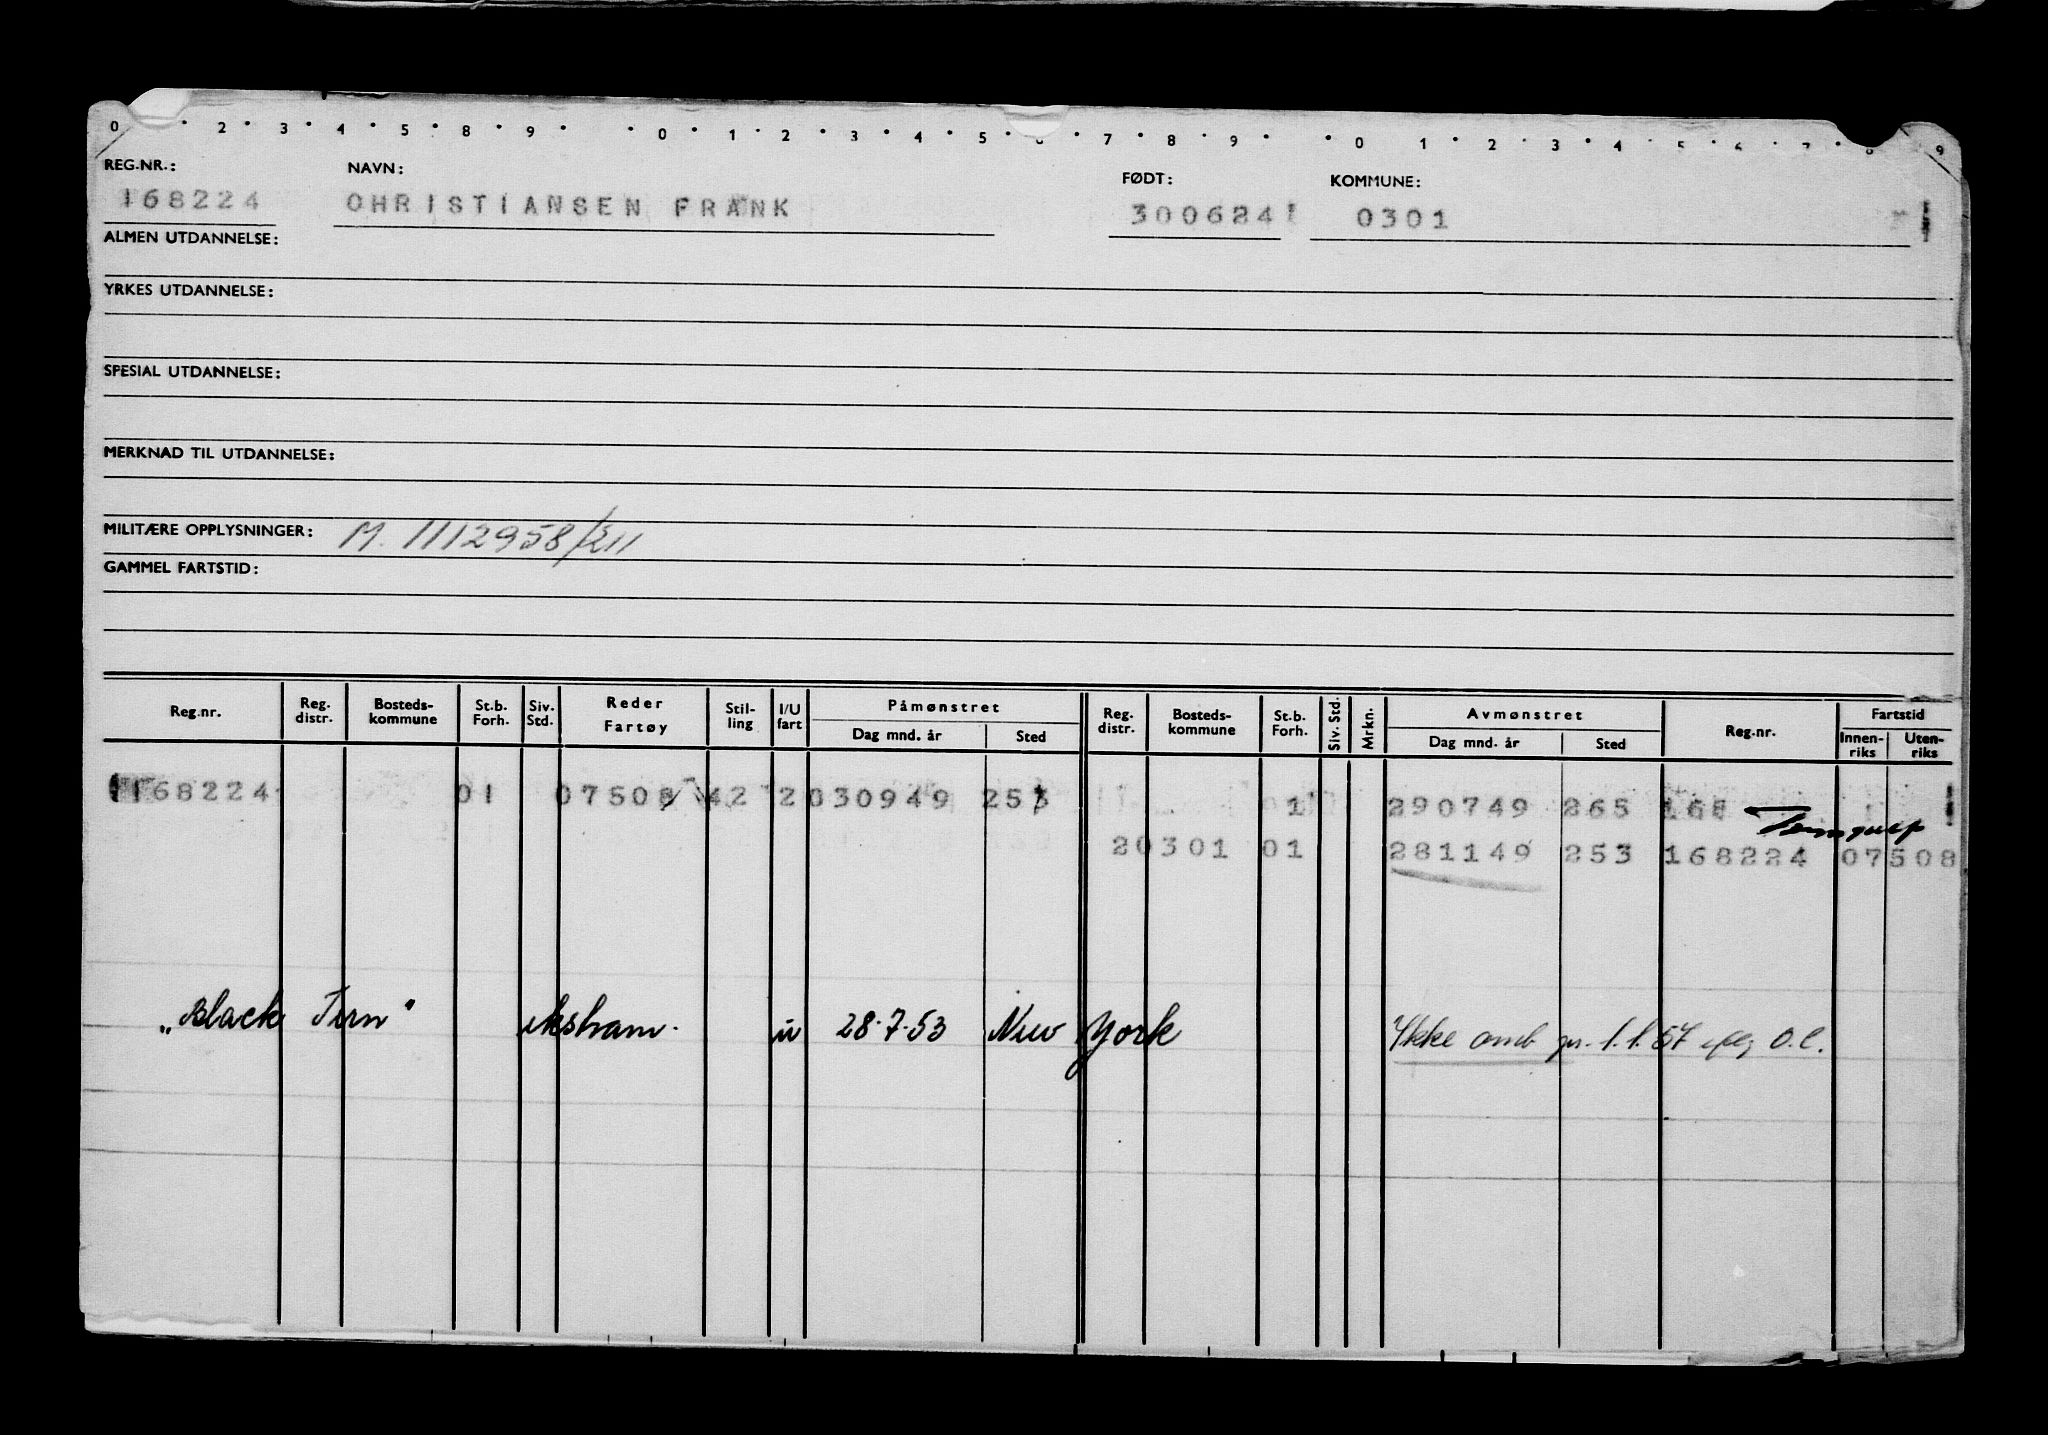 0 2 3 4 5 8 9 0 1 2 3 4 5 6 7 8 9 0 1 2 3 4 5 6 7 8 9
REG.NR.: NAVN: FØDT: KOMMUNE:
168224 OHRISTIANSEN FRANK 300624 0301
ALMEN UTDANNELSE:
YRKES UTDANNELSE:
SPESIAL UTDANNELSE:
MERKNAD TIL UTDANNELSE:
MILITÆRE OPPLYSNINGER: M. 1112958/211
GAMMEL FARTSTID:
Reg.nr. Reg. distr. Bosteds-kommune St.b. Forh. Siv. Std. Reder Fartøy Stil-ling I/U fart Påmønstret Dag mnd. år Sted Reg. distr. Bosteds-kommune St.b. Forh. Siv. Std. Mrkn. Avmønstret Dag mnd. år Sted Reg.nr. Fartstid Innen-riks Uten-riks
168224 01 07508 42 2 030949 253 1 290749 265 168
20301 01 281149 253 168224 07508
„Black Tern" ekstram. u 28.7.53 New York Ikke omb pr. 1.1.57 O.l.